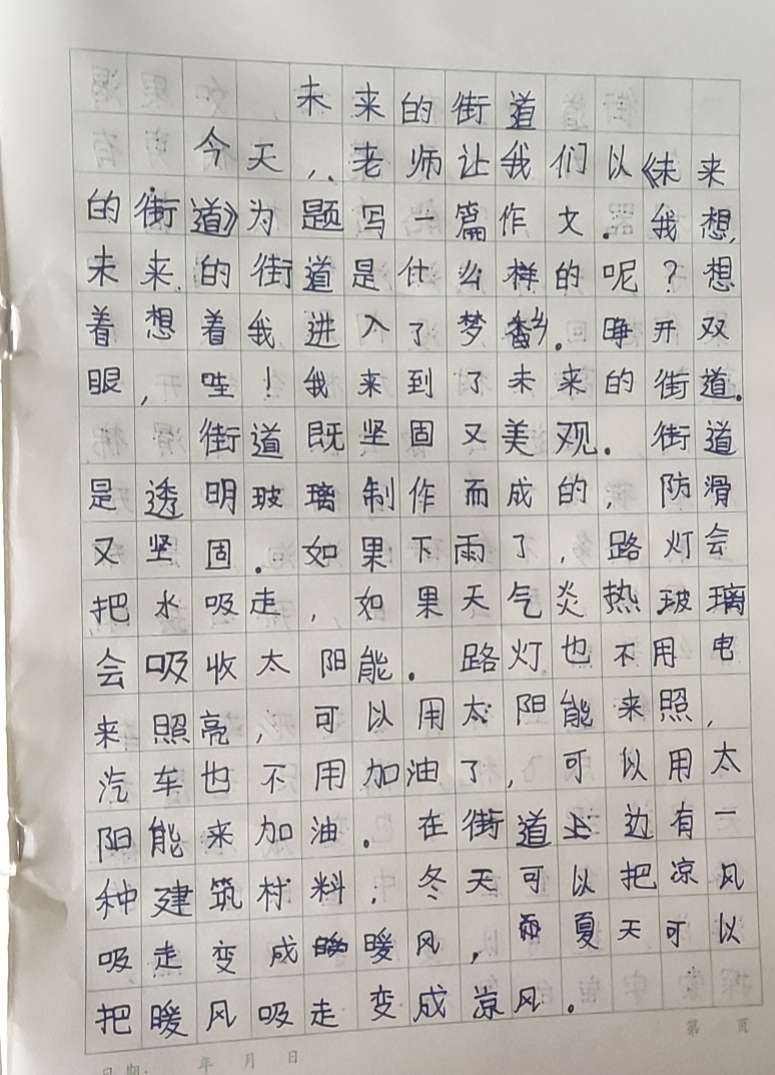 未来的街道
今天，老师让我们以《未来
的街道》为题写一篇作文。我想，
未来的街道是什么样的呢？想
着想着我进入了梦乡。睁开双
眼，哇！我来到了未来的街道。
街道既坚固又美观。街道
是透明玻璃制作而成的，防滑
又坚固。如果下雨了，路灯会
把水吸走，如果天气炎热玻璃
会吸收太阳能。路灯也不用电
来照亮，可以用太阳能来照，
汽车也不用加油了，可以用太
阳能来加油。在街道上边有一
种建筑材料，冬天可以把凉风
吸走变成暖风，而夏天可以
把暖风吸走变成凉风。
第 页
日期： 年 月 日